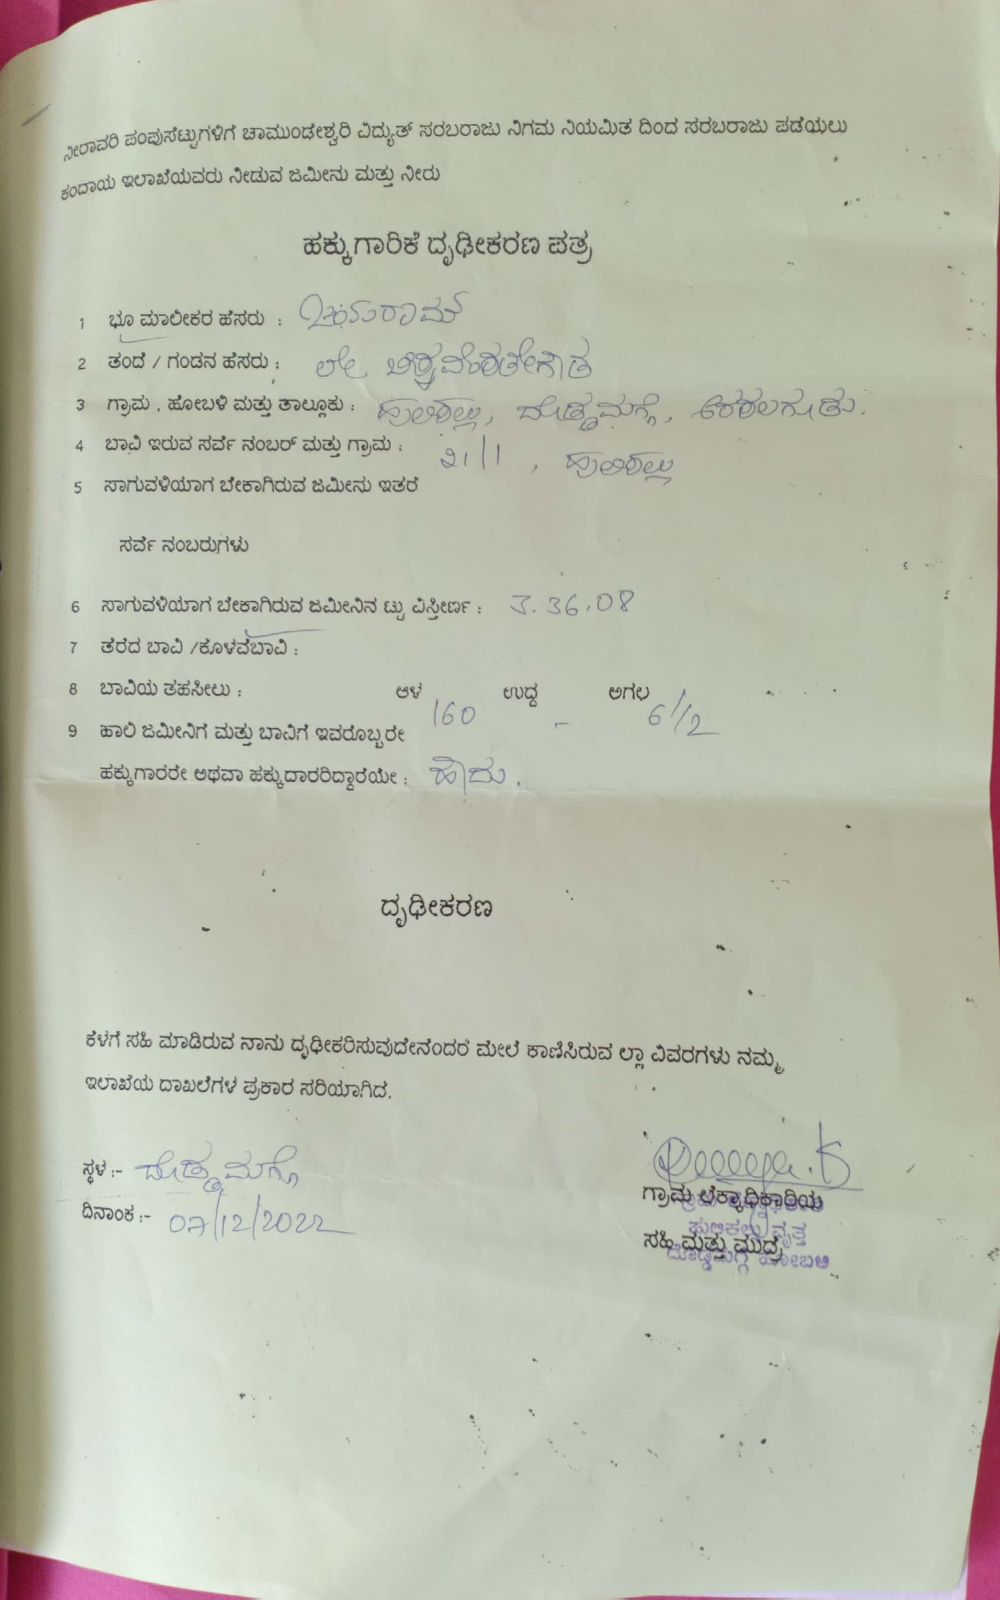 ನೀರಾವರಿ ಪಂಪುಸೆಟ್ಟುಗಳಿಗೆ ಚಾಮುಂಡೇಶ್ವರಿ ವಿದ್ಯುತ್ ಸರಬರಾಜು ನಿಗಮ ನಿಯಮಿತ ದಿಂದ ಸರಬರಾಜು ಪಡೆಯಲು
ಕಂದಾಯ ಇಲಾಖೆಯವರು ನೀಡುವ ಜಮೀನು ಮತ್ತು ನೀರು
ಹಕ್ಕುಗಾರಿಕೆ ದೃಢೀಕರಣ ಪತ್ರ
1 ಭೂ ಮಾಲೀಕರ ಹೆಸರು : ಜಯರಾಮ್
2 ತಂದೆ / ಗಂಡನ ಹೆಸರು : ಲೇ.
3 ಗ್ರಾಮ , ಹೋಬಳಿ ಮತ್ತು ತಾಲ್ಲೂಕು : ಹುಲಿಕಲ್ಲು, ದೊಡ್ಡಮಗ್ಗೆ, ಅರಕಲಗೂಡು.
4 ಬಾವಿ ಇರುವ ಸರ್ವೆ ನಂಬರ್ ಮತ್ತು ಗ್ರಾಮ : 21/1 , ಹುಲಿಕಲ್ಲು
5 ಸಾಗುವಳಿಯಾಗ ಬೇಕಾಗಿರುವ ಜಮೀನು ಇತರೆ
ಸರ್ವೆ ನಂಬರುಗಳು
6 ಸಾಗುವಳಿಯಾಗ ಬೇಕಾಗಿರುವ ಜಮೀನಿನ ಟ್ಟು ವಿಸ್ತೀರ್ಣ : 3.36.08
7 ತೆರೆದ ಬಾವಿ /ಕೊಳವೆಬಾವಿ :
8 ಬಾವಿಯ ತಹಸೀಲು : ಆಳ ಉದ್ದ ಅಗಲ
160 - 6 1/2
9 ಹಾಲಿ ಜಮೀನಿಗೆ ಮತ್ತು ಬಾವಿಗೆ ಇವರೊಬ್ಬರೇ
ಹಕ್ಕುಗಾರರೇ ಅಥವಾ ಹಕ್ಕುದಾರರಿದ್ದಾರೆಯೇ : ಹೌದು.
ದೃಢೀಕರಣ
ಕೆಳಗೆ ಸಹಿ ಮಾಡಿರುವ ನಾನು ದೃಢೀಕರಿಸುವುದೇನೆಂದರೆ ಮೇಲೆ ಕಾಣಿಸಿರುವ ಲ್ಲಾ ವಿವರಗಳು ನಮ್ಮ
ಇಲಾಖೆಯ ದಾಖಲೆಗಳ ಪ್ರಕಾರ ಸರಿಯಾಗಿದೆ.
ಸ್ಥಳ :- ದೊಡ್ಡಮಗ್ಗೆ
ದಿನಾಂಕ :- 07/12/2022
ಗ್ರಾಮ ಲೆಕ್ಕಾಧಿಕಾರಿಯ
ಹುಲಿಕಲ್ಲು ವೃತ್ತ
ಸಹಿ ಮತ್ತು ಮುದ್ರೆ
ದೊಡ್ಡಮಗ್ಗೆ ಹೋಬಳಿ